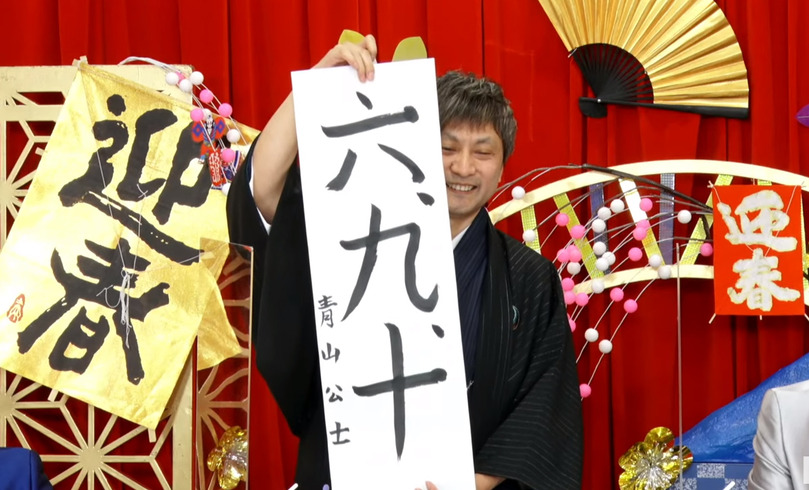 迎春
六、九、十
青山公士
迎春